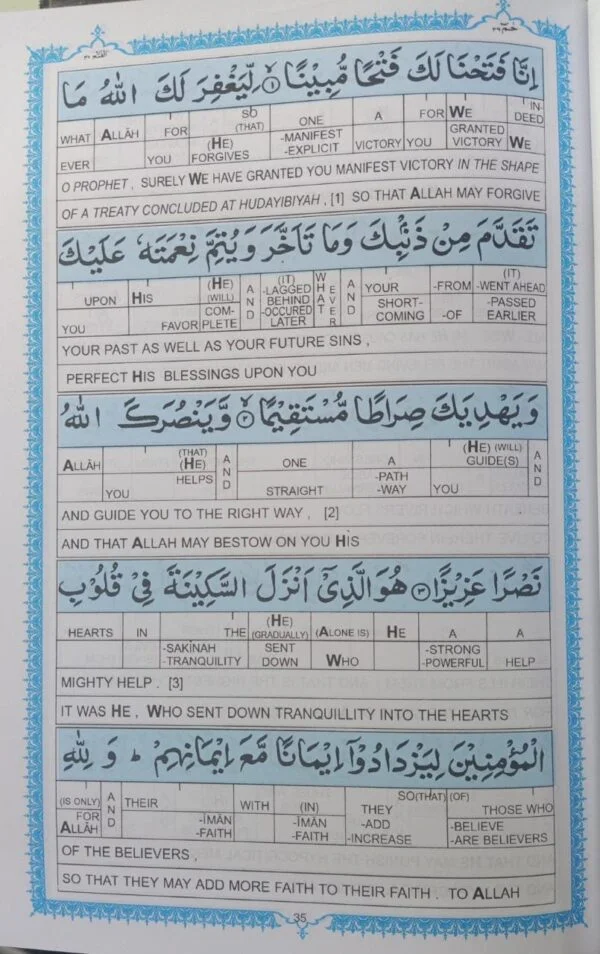 الفتح ٤٨
حٰمٓ ٢٦
اِنَّا فَتَحْنَا لَكَ فَتْحًا مُّبِيْنًا ۙ﴿۱﴾ لِّيَغْفِرَ لَكَ اللّٰهُ مَا
WHAT EVER | ALLÂH | FOR YOU | SO (THAT) (HE) FORGIVES | ONE -MANIFEST -EXPLICIT | A VICTORY | FOR YOU | WE GRANTED VICTORY | INDEED WE
O PROPHET , SURELY WE HAVE GRANTED YOU MANIFEST VICTORY IN THE SHAPE
OF A TREATY CONCLUDED AT HUDAYIBIYAH , [1] SO THAT ALLAH MAY FORGIVE
تَقَدَّمَ مِنْ ذَنْۢبِكَ وَمَا تَاَخَّرَ وَيُتِمَّ نِعْمَتَهٗ عَلَيْكَ
UPON YOU | HIS FAVOR | (HE) (WILL) COMPLETE | AND | (IT) -LAGGED BEHIND -OCCURED LATER | WHAT EVER | AND | YOUR SHORT-COMING | -FROM -OF | (IT) -WENT AHEAD -PASSED EARLIER
YOUR PAST AS WELL AS YOUR FUTURE SINS ,
PERFECT HIS BLESSINGS UPON YOU
وَيَهْدِيَكَ صِرَاطًا مُّسْتَقِيْمًا ۙ﴿۲﴾ وَّيَنْصُرَكَ اللّٰهُ
ALLÂH | YOU | (THAT) (HE) HELPS | AND | ONE STRAIGHT | A -PATH -WAY | YOU | (HE) (WILL) GUIDE(S) | AND
AND GUIDE YOU TO THE RIGHT WAY , [2]
AND THAT ALLAH MAY BESTOW ON YOU HIS
نَصْرًا عَزِيْزًا ﴿۳﴾ هُوَ الَّذِيْۤ اَنْزَلَ السَّكِيْنَةَ فِيْ قُلُوْبِ
HEARTS | IN | THE -SAKÎNAH -TRANQUILITY | (HE) (GRADUALLY) SENT DOWN | (ALONE IS) WHO | HE | A -STRONG -POWERFUL | A HELP
MIGHTY HELP . [3]
IT WAS HE , WHO SENT DOWN TRANQUILLITY INTO THE HEARTS
الْمُؤْمِنِيْنَ لِيَزْدَادُوْۤا اِيْمَانًا مَّعَ اِيْمَانِهِمْ ؕ وَ لِلّٰهِ
(IS ONLY) FOR ALLÂH | AND | THEIR -ÎMÂN -FAITH | WITH | (IN) -ÎMÂN -FAITH | SO(THAT) THEY -ADD -INCREASE | (OF) THOSE WHO -BELIEVE -ARE BELIEVERS
OF THE BELIEVERS ,
SO THAT THEY MAY ADD MORE FAITH TO THEIR FAITH . TO ALLAH
35